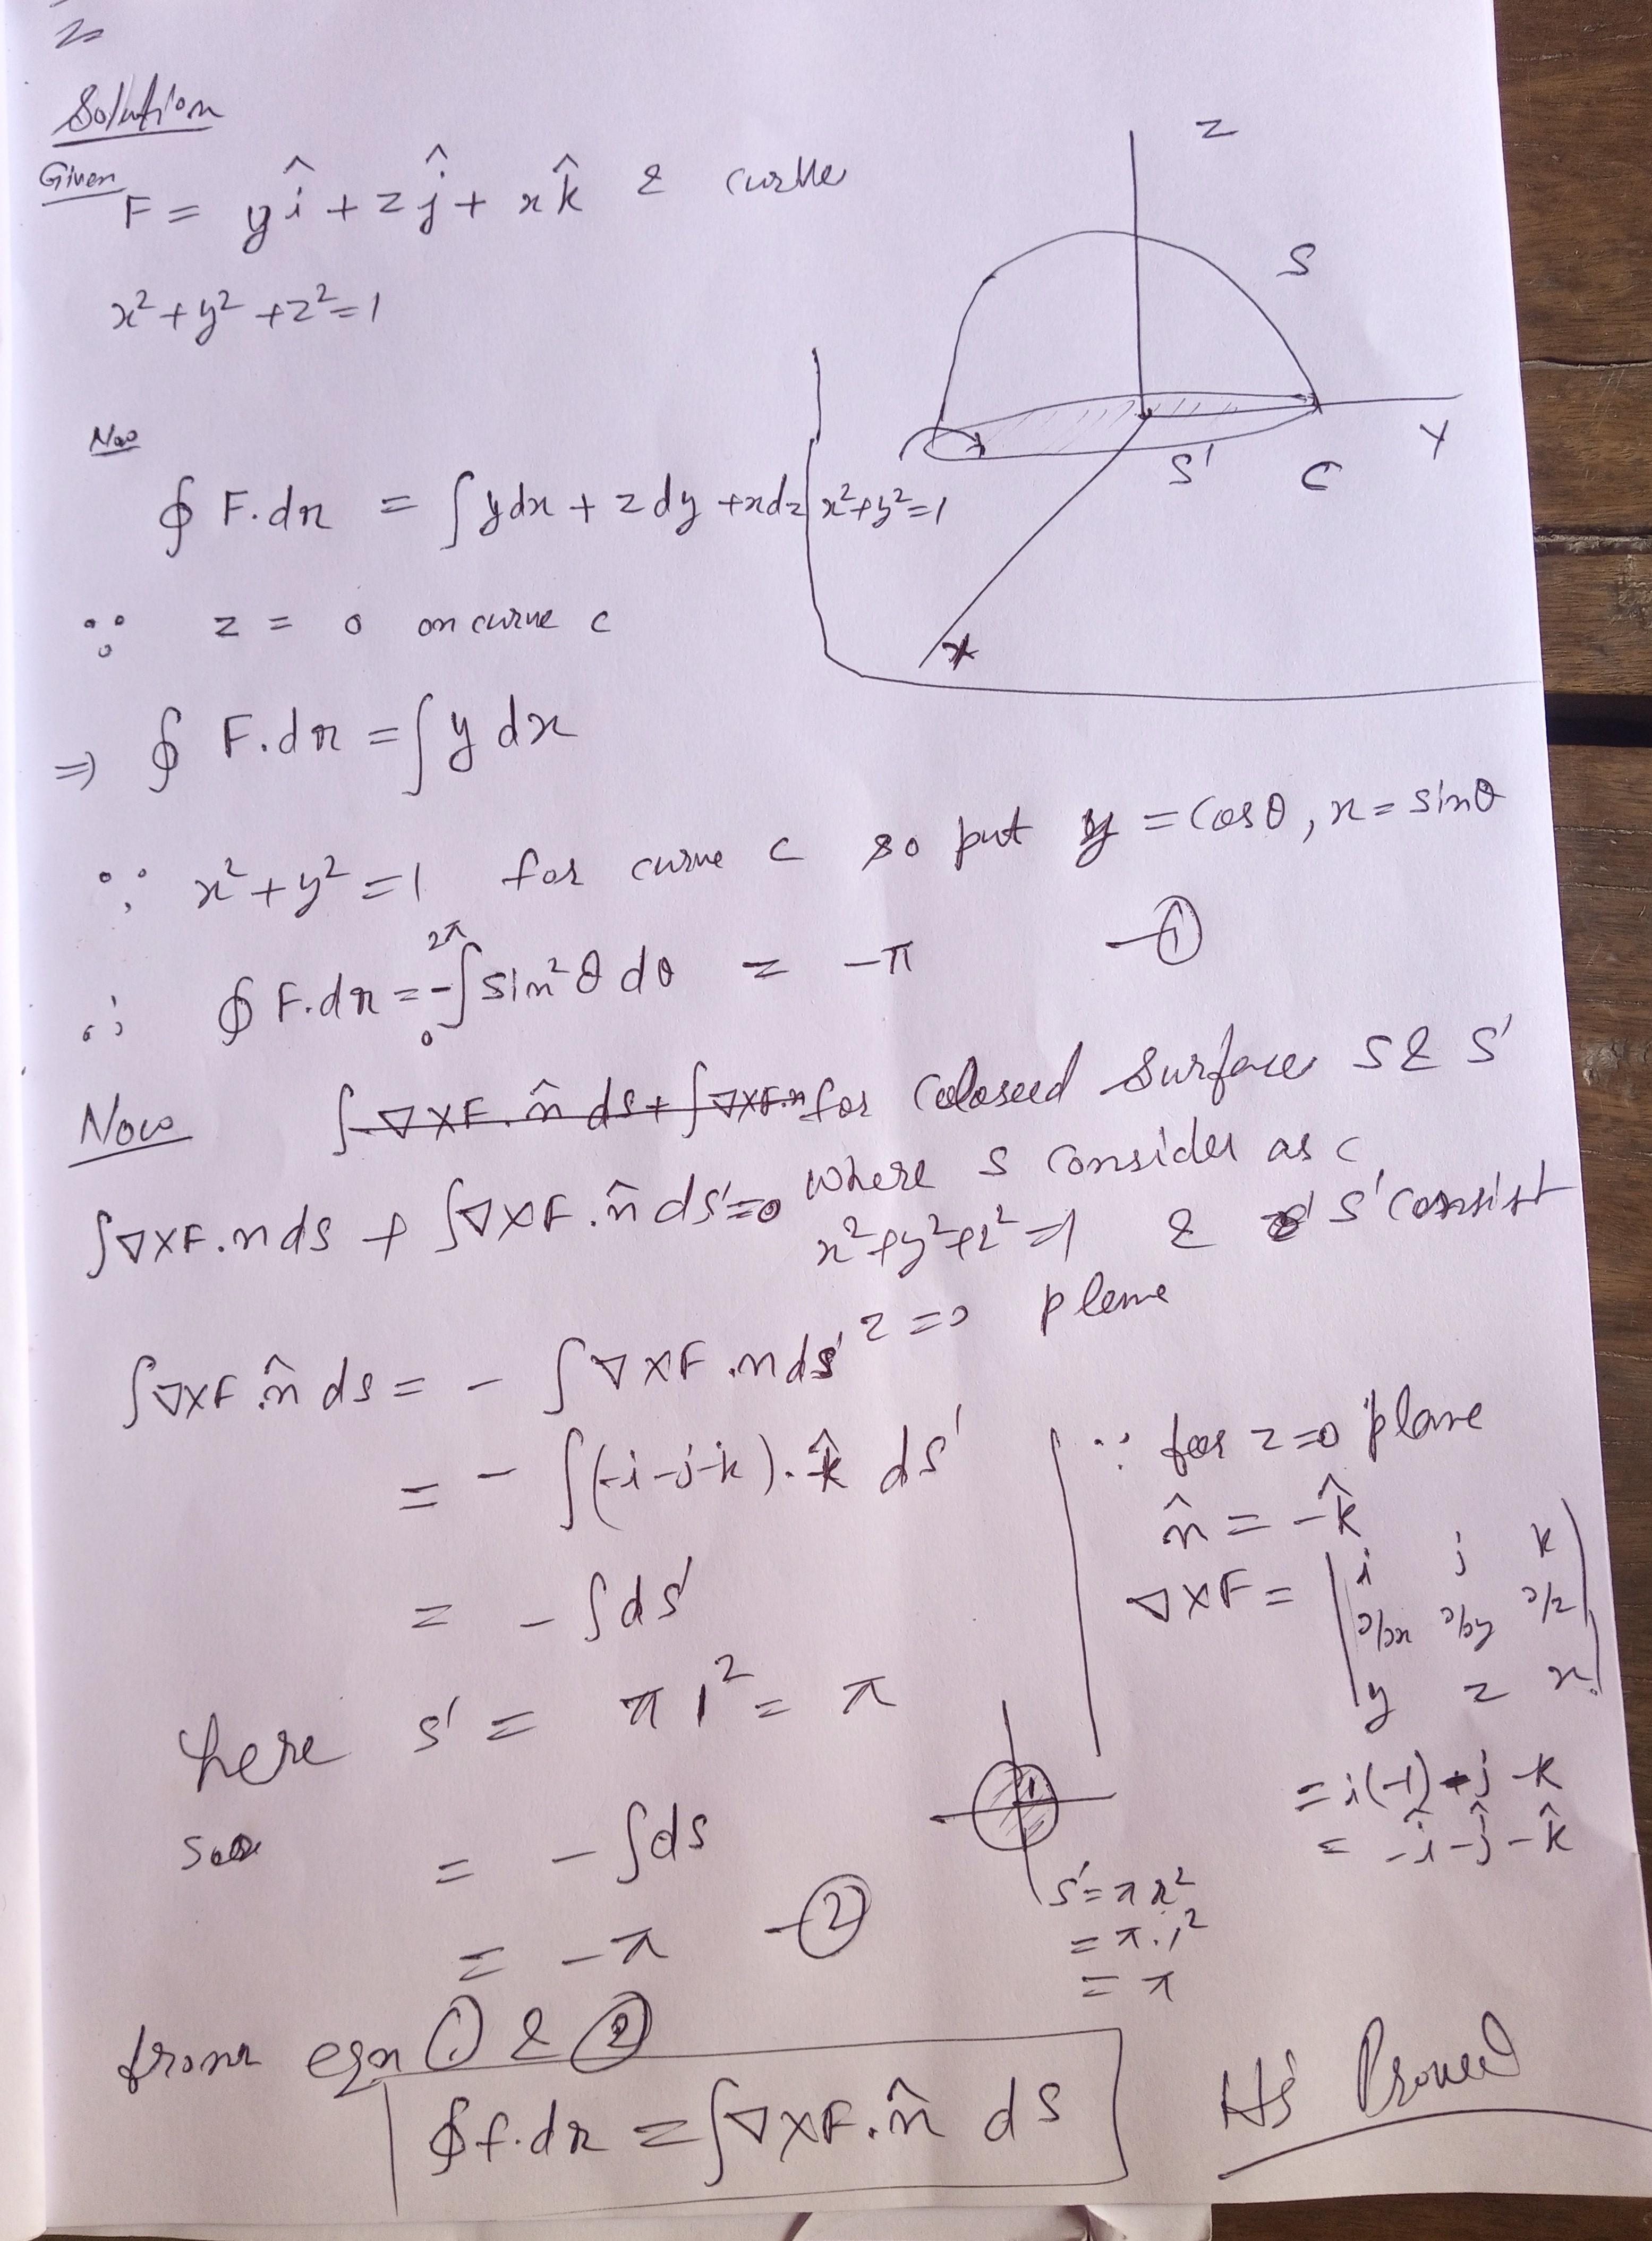 Solution
Given F = yî + zĵ + xk̂ & curve
x² + y² + z² = 1
Z
S
Y
S' C
X
Now
∮ F.dr = ∫ydx + zdy + xdz x²+y²=1
∵ z = 0 on curve c
⇒ ∮ F.dr = ∫ y dx
∵ x² + y² = 1 for curve c so put y = cosθ, x = sinθ
∴ ∮ F.dr = -∫₀^2π sin²θ dθ = -π —①
Now for coloseed surface S & S'
∫∇×F.n ds + ∫∇×F.n̂ ds'=0 where S consider as c
x²+y²+z²=1 & S' consist
z=0 plane
∫∇×F.n̂ ds = - ∫∇×F.n ds'
= - ∫(-i-j-k).-k̂ ds'
= - ∫ds'
here s' = π1² = π
= - ∫ds
= -π —②
∵ for z=0 plane
n̂ = -k̂
∇×F = | i j k
∂/∂x ∂/∂y ∂/z
y z x |
= i(-1) - j - k
= -î - ĵ - k̂
1
s' = πr²
= π.1²
= π
from eqn ① & ②
∮f.dr = ∫∇×F.n̂ ds
H's Proved